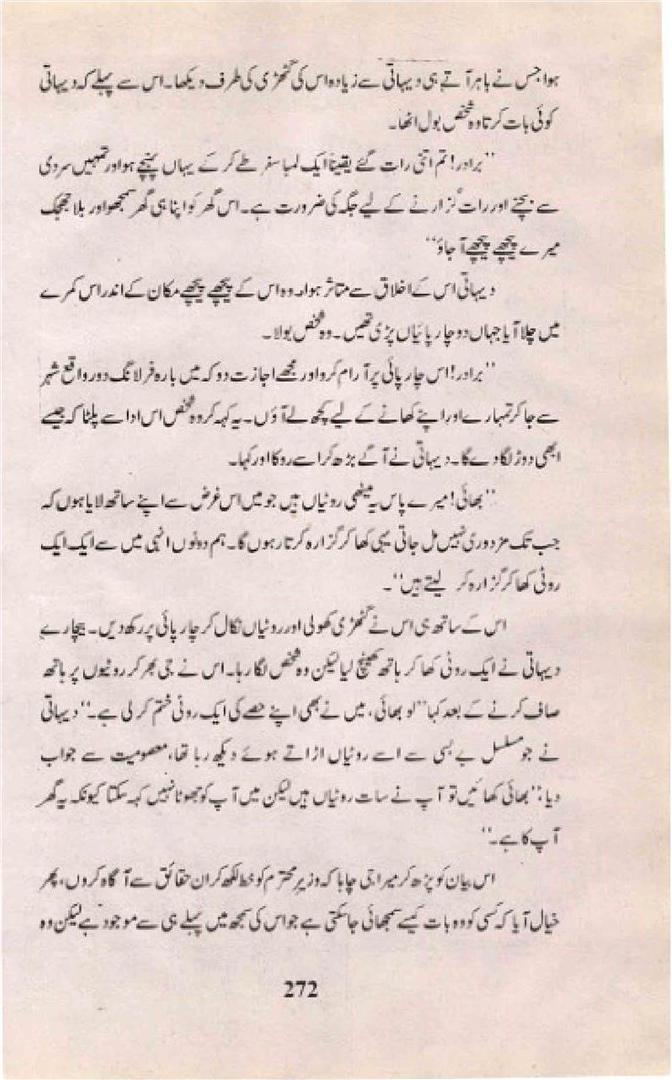 ہوا جس نے باہر آتے ہی دیہاتی سے زیادہ اس کی گٹھڑی کی طرف دیکھا۔ اس سے پہلے کہ دیہاتی
کوئی بات کرتا وہ شخص بول اٹھا۔
”برادر! تم اتنی رات گئے یقیناً ایک لمبا سفر طے کر کے یہاں پہنچے ہو اور تمہیں سردی
سے بچنے اور رات گزارنے کے لیے جگہ کی ضرورت ہے۔ اس گھر کو اپنا ہی گھر سمجھو اور بلا جھجک
میرے پیچھے پیچھے آ جاؤ“
دیہاتی اس کے اخلاق سے متاثر ہوا۔ وہ اس کے پیچھے پیچھے مکان کے اندر اس کمرے
میں چلا آیا جہاں دو چارپائیاں پڑی تھیں۔ وہ شخص بولا۔
”برادر! اس چارپائی پر آرام کرو اور مجھے اجازت دو کہ میں بارہ فرلانگ دور واقع شہر
سے جا کر تمہارے اور اپنے کھانے کے لیے کچھ لے آؤں۔ یہ کہہ کر وہ شخص اس ادا سے پلٹا کہ جیسے
ابھی دوڑ لگا دے گا۔ دیہاتی نے آگے بڑھ کر اسے روکا اور کہا۔
”بھائی! میرے پاس یہ میٹھی روٹیاں ہیں جو میں اس غرض سے اپنے ساتھ لایا ہوں کہ
جب تک مزدوری نہیں مل جاتی یہی کھا کر گزارہ کرتا رہوں گا۔ ہم دونوں انہی میں سے ایک ایک
روٹی کھا کر گزارہ کر لیتے ہیں“۔
اس کے ساتھ ہی اس نے گٹھڑی کھولی اور روٹیاں نکال کر چارپائی پر رکھ دیں۔ بیچارے
دیہاتی نے ایک روٹی کھا کر ہاتھ کھینچ لیا لیکن وہ شخص لگا رہا۔ اس نے جی بھر کر روٹیوں پر ہاتھ
صاف کرنے کے بعد کہا ”لو بھائی، میں نے بھی اپنے حصے کی ایک روٹی ختم کر لی ہے۔“ دیہاتی
نے جو مسلسل بے بسی سے اسے روٹیاں اڑاتے ہوئے دیکھ رہا تھا، معصومیت سے جواب
دیا؛ ”بھائی کھائیں تو آپ نے سات روٹیاں ہیں لیکن میں آپ کو جھوٹا نہیں کہہ سکتا کیونکہ یہ گھر
آپ کا ہے۔“
اس بیان کو پڑھ کر میرا جی چاہا کہ وزیر محترم کو خط لکھ کر ان حقائق سے آگاہ کروں، پھر
خیال آیا کہ کسی کو وہ بات کیسے سمجھائی جا سکتی ہے جو اس کی سمجھ میں پہلے ہی سے موجود ہے لیکن وہ
272